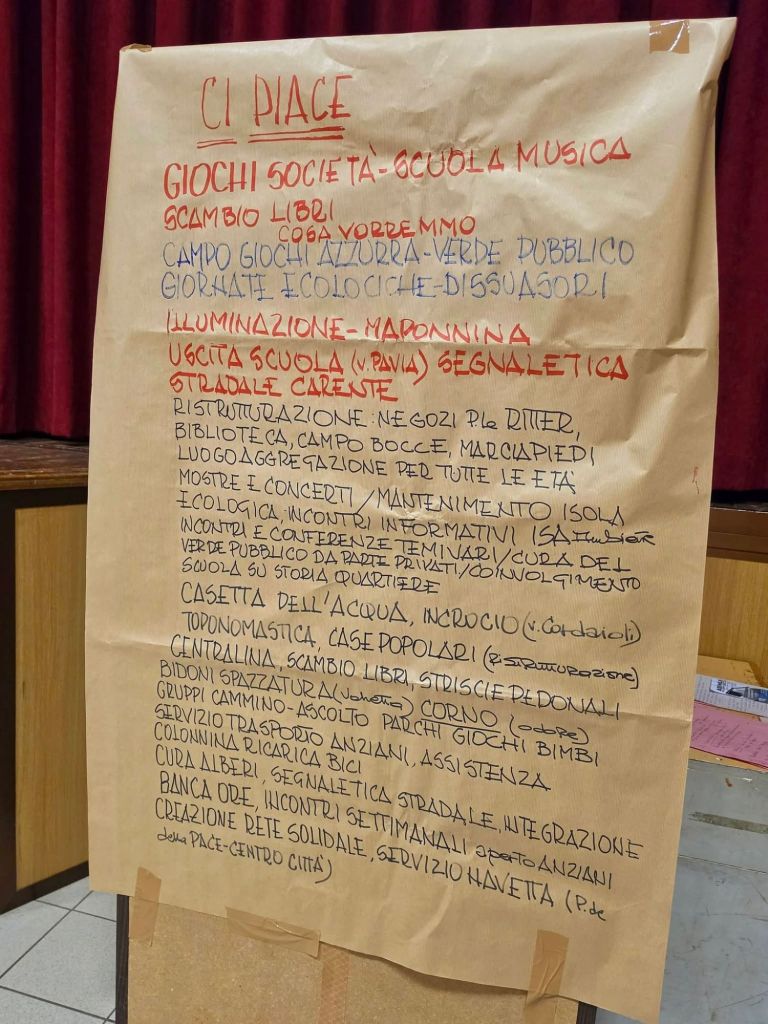 CI PIACE
GIOCHI SOCIETÀ-SCUOLA MUSICA
SCAMBIO LIBRI
COSA VORREMMO
CAMPO GIOCHI AZZURRA-VERDE PUBBLICO
GIORNATE ECOLOCICHE-DISSUASORI
ILLUMINAZIONE-MADONNINA
USCITA SCUOLA (V. PAVIA) SEGNALETICA
STRADALE CARENTE
RISTRUTTURAZIONE: NEGOZI P.le RITTER,
BIBLIOTECA, CAMPO BOCCE, MARCIAPIEDI
LUOGO AGGREGAZIONE PER TUTTE LE ETÀ
MOSTRE E CONCERTI/MANTENIMENTO ISOLA
ECOLOGICA, INCONTRI INFORMATIVI ISA Ambiente
INCONTRI E CONFERENZE TEMIVARI/CURA DEL
VERDE PUBBLICO DA PARTE PRIVATI/COINVOLGIMENTO
SCUOLA SU STORIA QUARTIERE
CASETTA DELL'ACQUA, INCROCIO (v. Cordaioli)
TOPONOMASTICA, CASE POPOLARI (RiSTRUTTURAZIONE)
CENTRALINA, SCAMBIO LIBRI, STRISCIE PEDONALI
BIDONI SPAZZATURA CORNO
GRUPPI CAMMINO-ASCOLTO PARCHI GIOCHI BIMBI
SERVIZIO TRASPORTO ANZIANI, ASSISTENZA
COLONNINA RICARICA BICI
CURA ALBERI, SEGNALETICA STRADALE, INTEGRAZIONE
BANCA ORE, INCONTRI SETTIMANALI aperto ANZIANI
CREAZIONE RETE SOLIDALE, SERVIZIO NAVETTA (P. de
della PACE-CENTRO CITTÀ)